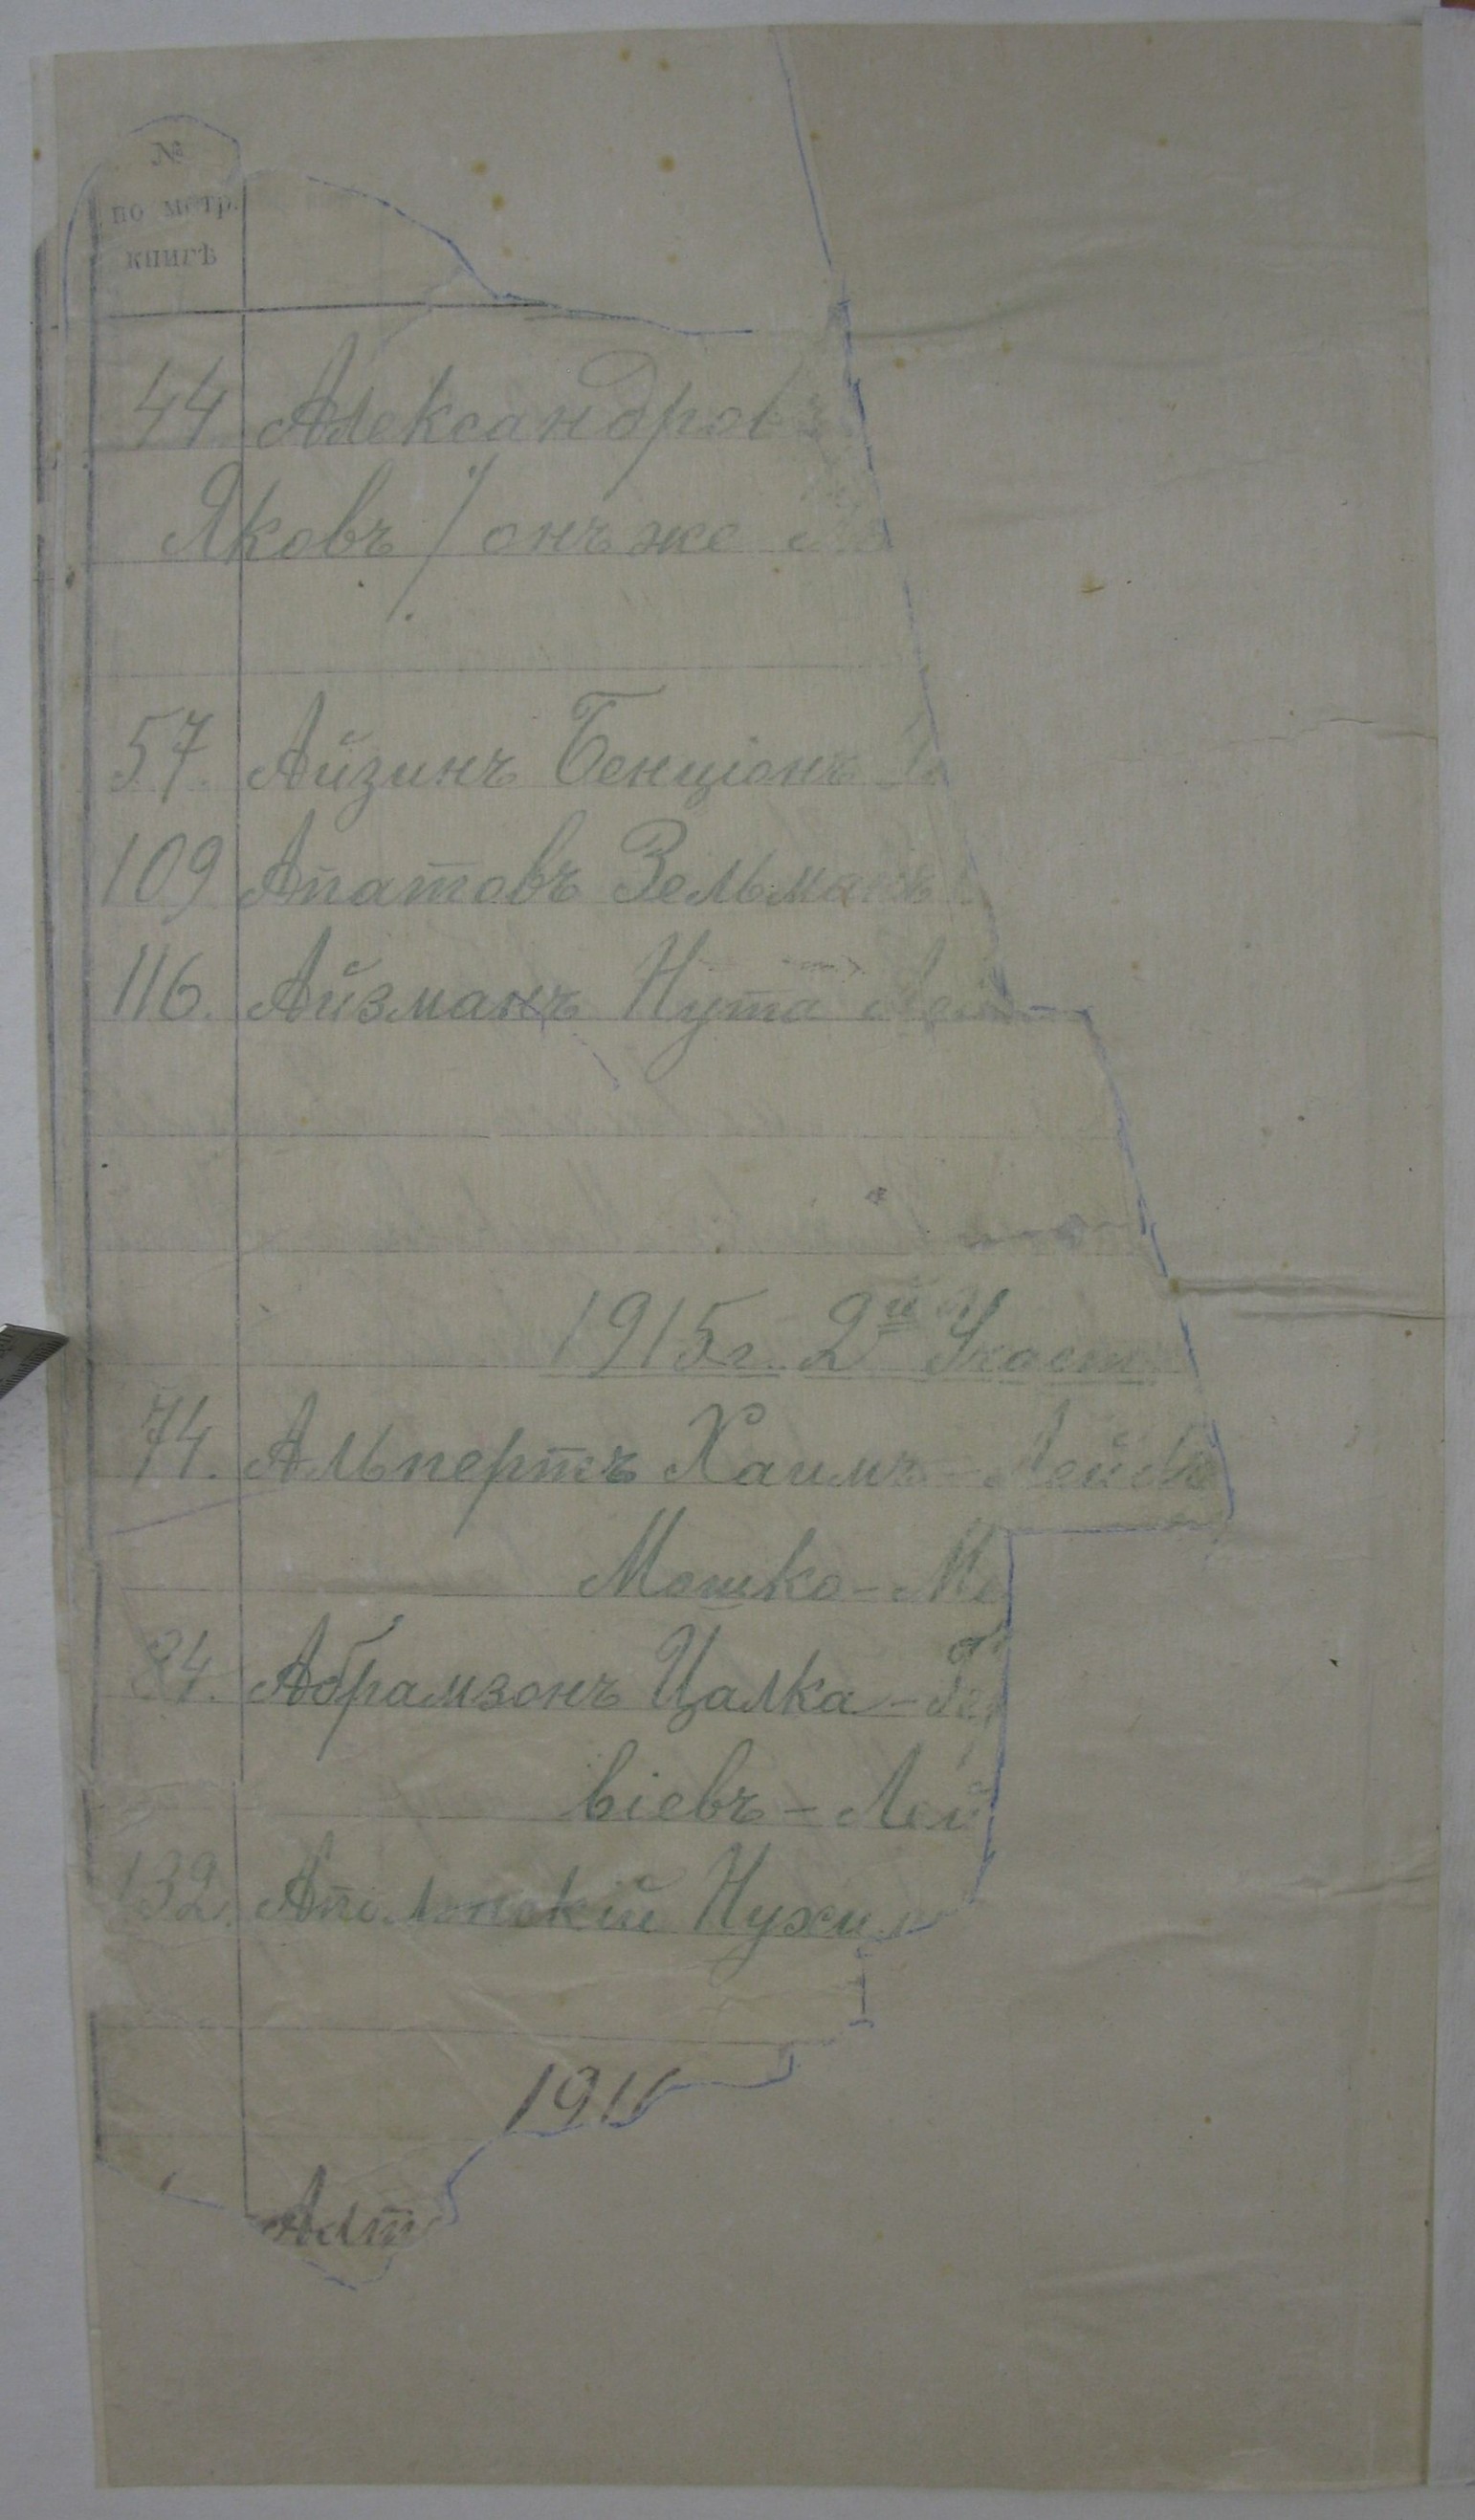 №
по метр.
книгѣ
44 Александров
Яковъ / онъ же
57. Айзинъ Бенціонъ
109 Апатовъ Зельманъ
116. Айзманъ Нута
1915 г. 2й Участ
74. Альпертъ Хаимъ - Лейб
Мошко - Ме
84. Абрамзонъ Цалка -
віевъ - Лей
132. Нухим
191
Алт